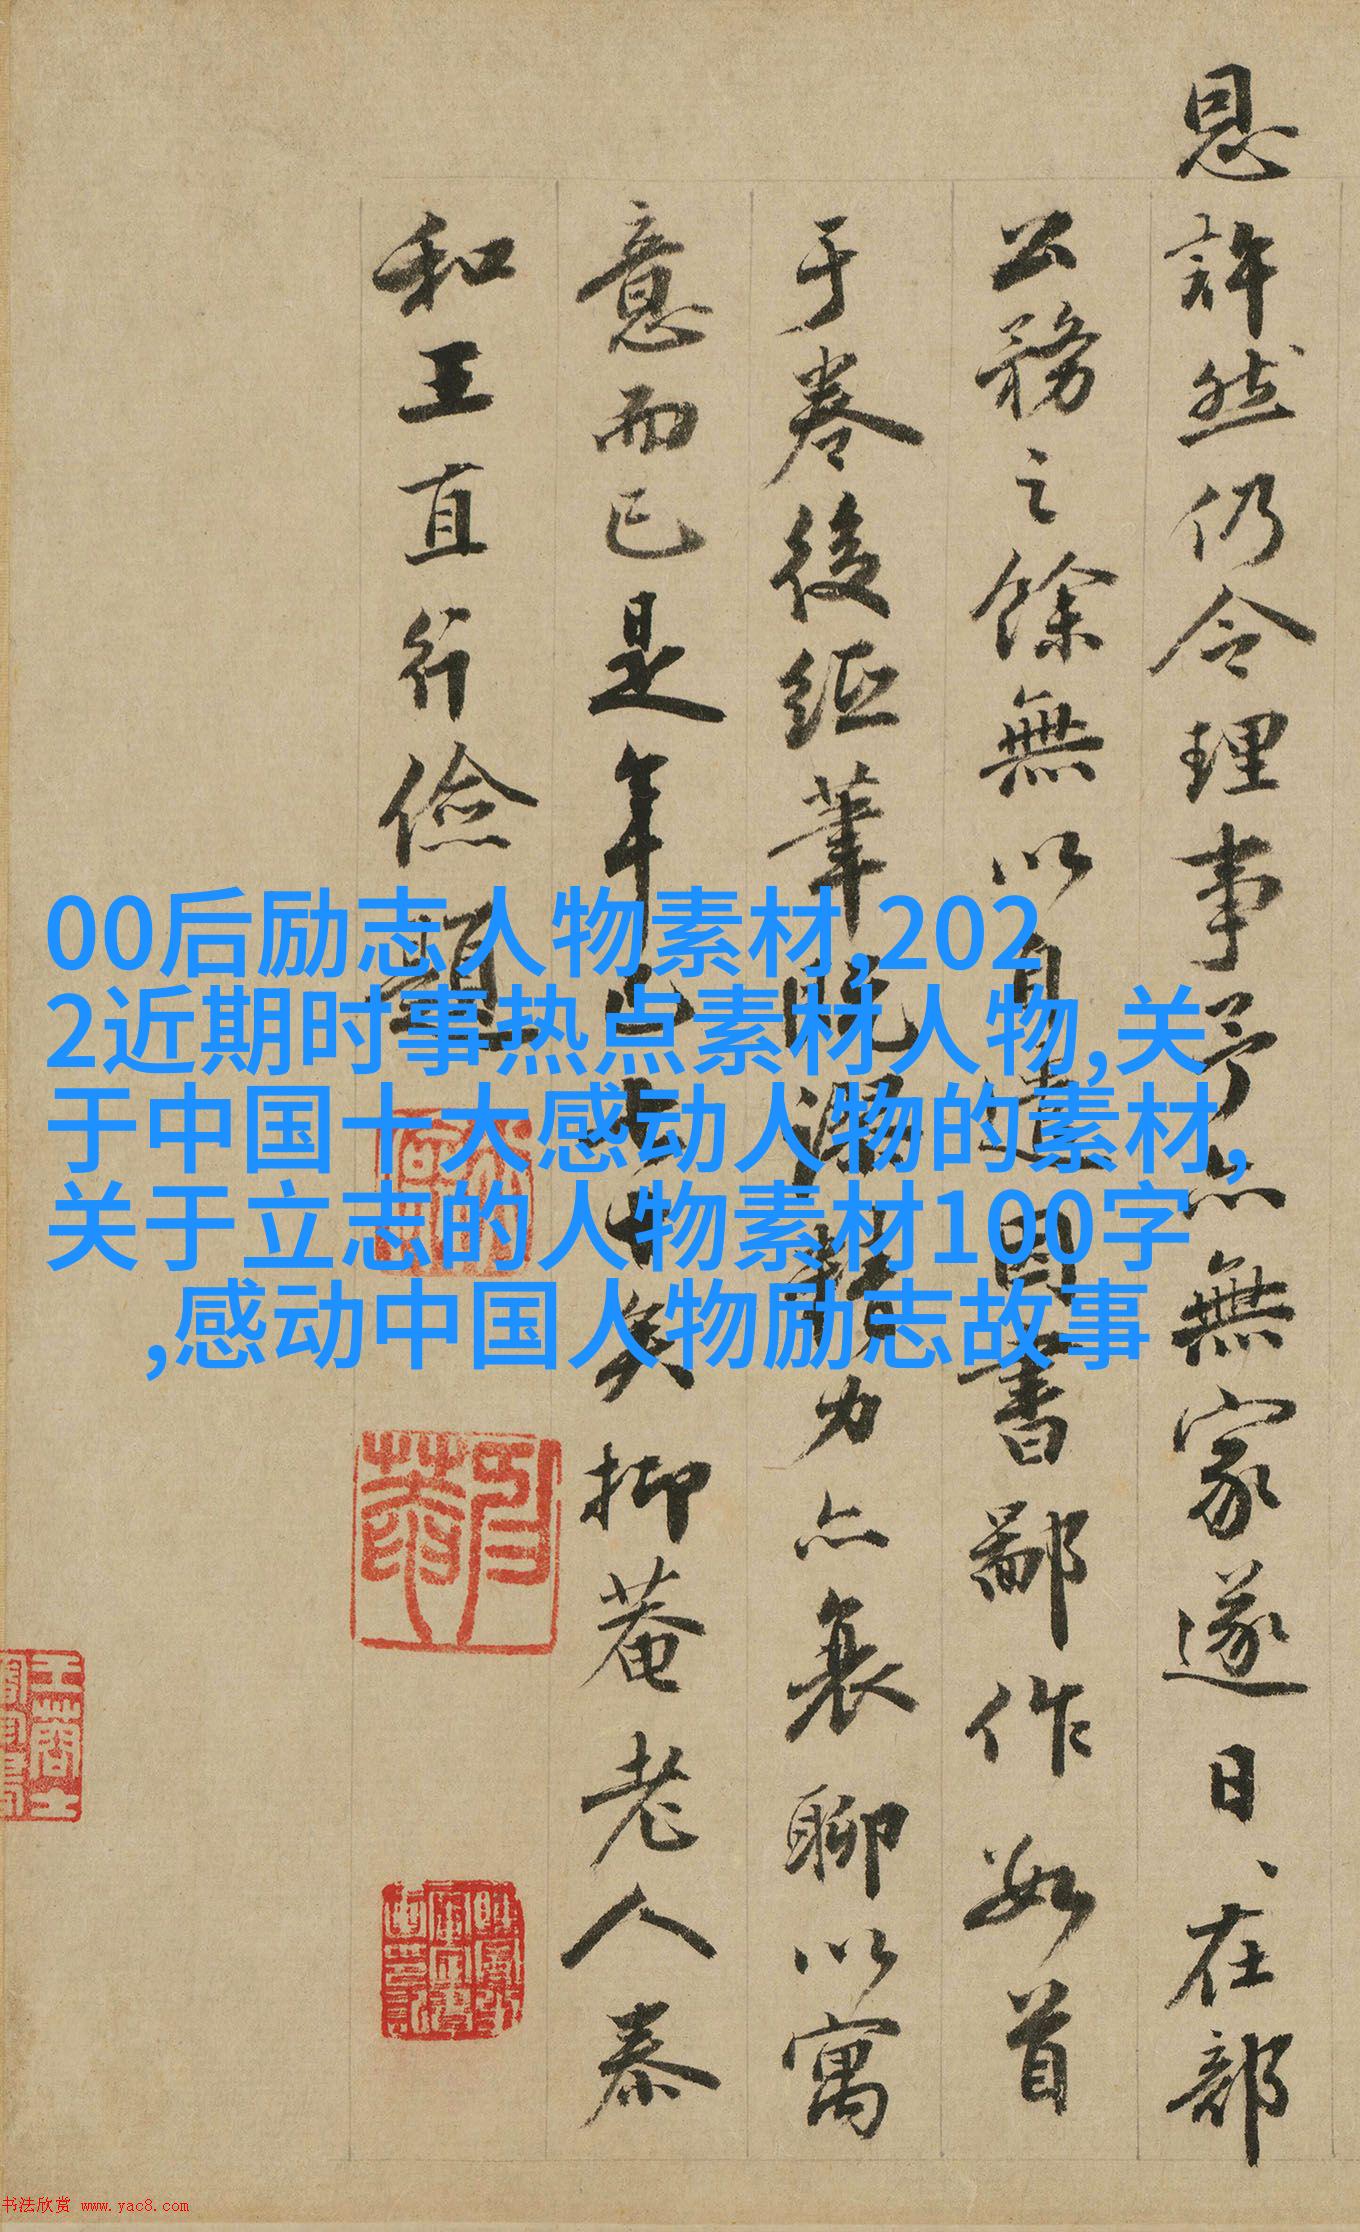 恩許然仍令理事予亦無家遂日、在部
公務之餘無以自遣因書鄙作數首
于卷後紙筆既澀力亦衰聊以寓
意而已是年矣抑菴老人泰
和王直行儉題
00后励志人物素材,202
2近期时事热点素材人物,关
于中国十大感动人物的素材,
关于立志的人物素材100字
,感动中国人物励志故事
书法欣赏 www.yac8.com